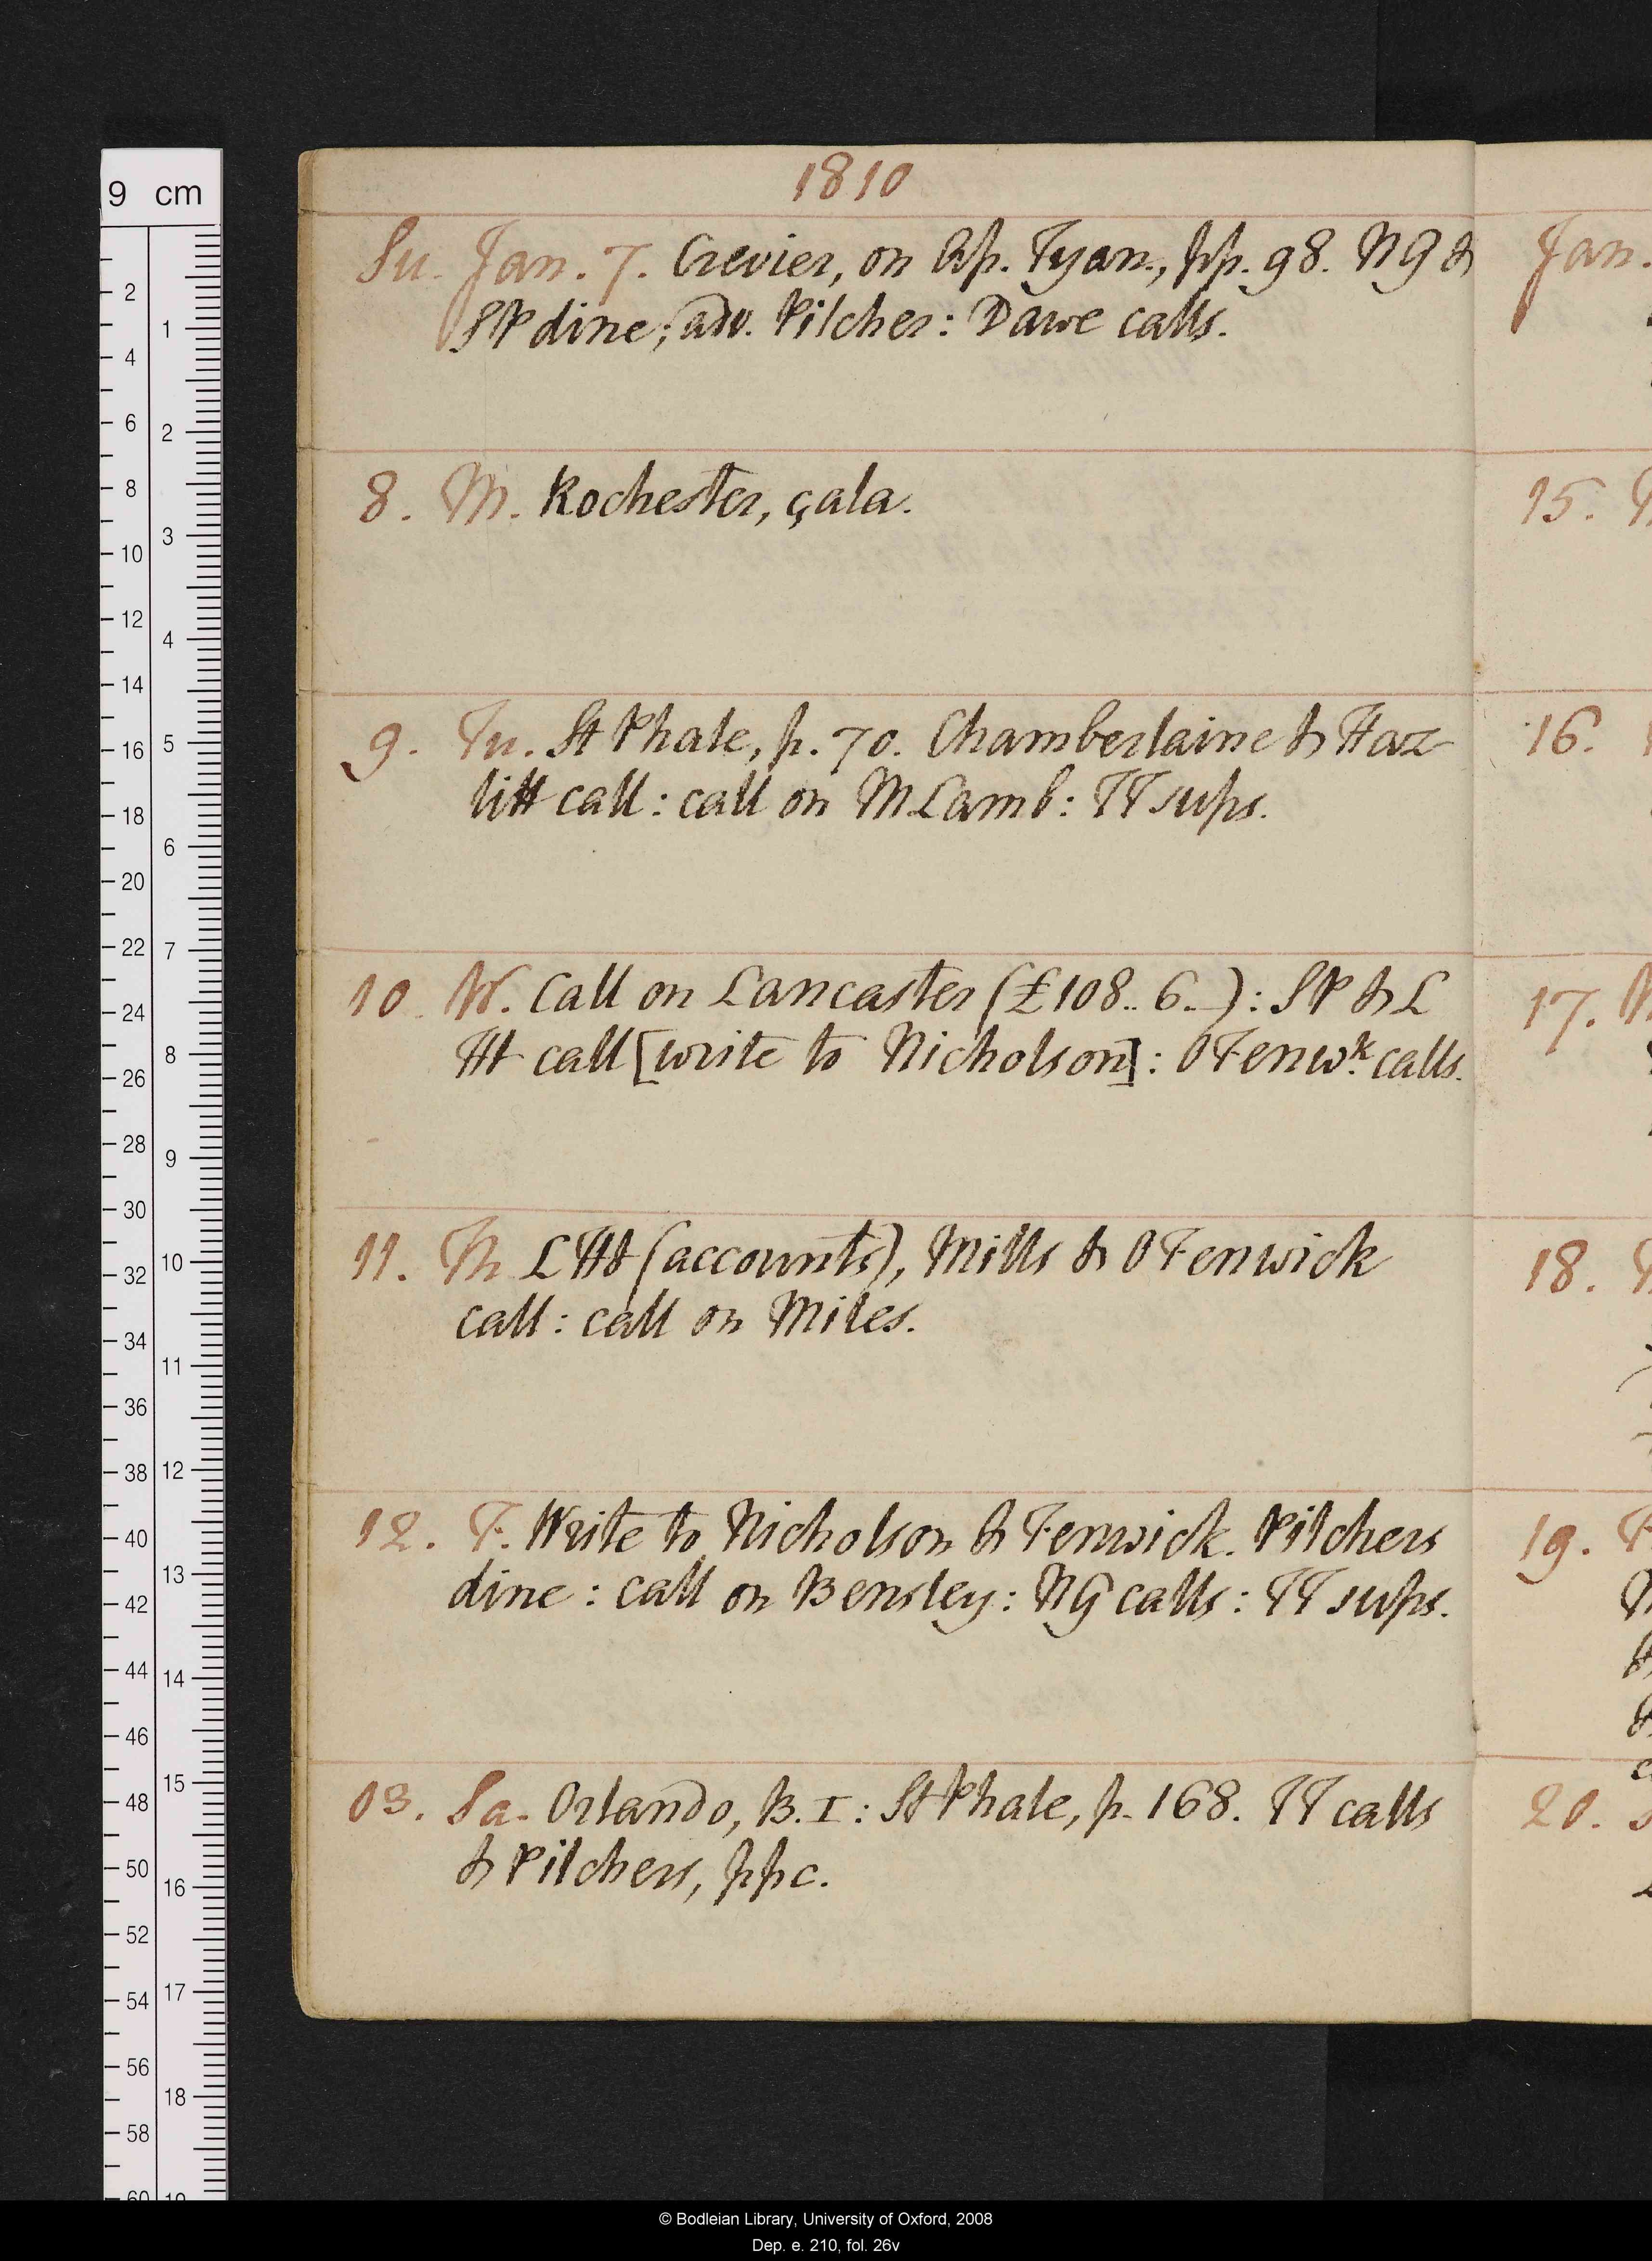 1810
Su. Jan. 7. Crevier, on Ap. Tyan., pp. 98. NG &
SP dine; adv. Pilcher: Dawe calls.
8. M. Rochester, çala.
9. Tu. St Phale, p. 70. Chamberlaine & Haz-
litt call: call on M Lamb: TT sups.
10. W. Call on Lancaster (£108.. 6..-): SP & L
Ht call [write to Nicholson]: O Fenwk. calls.
11. Th. L Ht (accounts), Mills & O Fenwick
call: call on Miles.
12. F. Write to Nicholson & Fenwick. Pilchers
dine: call on Bensley: NG calls: TT sups.
13. Sa. Orlando, B. I: St Phale, p. 168. TT calls
& Pilchers, ppc.
Jan.
15.
16.
17.
18.
19.
20.
9 cm
2
4
6
8
10
12
14
16
18
20
22
24
26
28
30
32
34
36
38
40
42
44
46
48
50
52
54
56
58
60
1
2
3
4
5
6
7
8
9
10
11
12
13
14
15
16
17
18
19
© Bodleian Library, University of Oxford, 2008
Dep. e. 210, fol. 26v